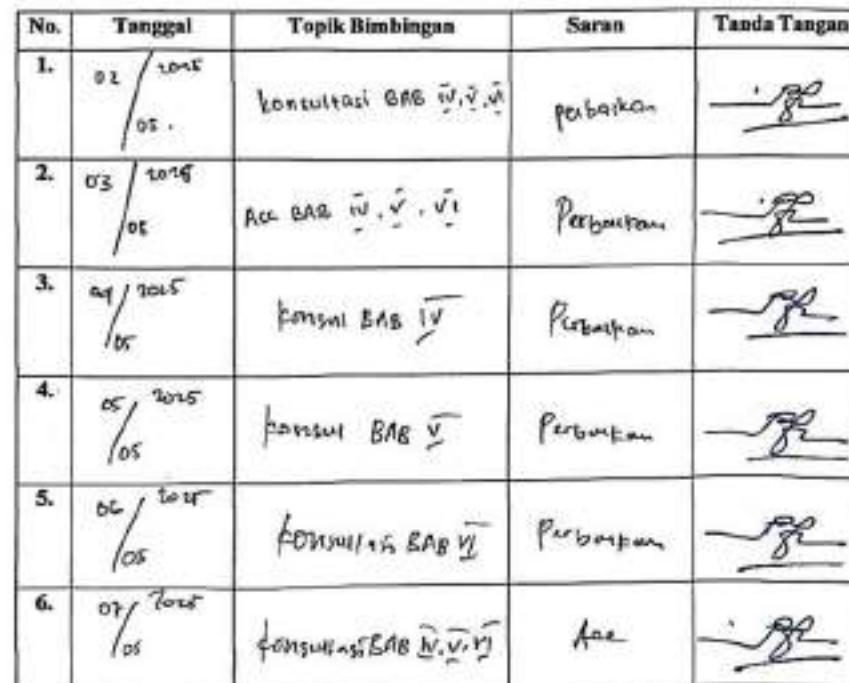 No. Tanggal Topik Bimbingan Saran Tanda Tangan
1. 02/05. 2025 konsultasi BAB IV, V, VI perbaikan
2. 03/05 2025 Acc BAB IV, V, VI Perbaikan
3. 04/05 2025 konsul BAB IV Perbaikan
4. 05/05 2025 konsul BAB V Perbaikan
5. 06/05 2025 konsultasi BAB VI Perbaikan
6. 07/05 2025 konsultasi BAB IV, V, VI Acc